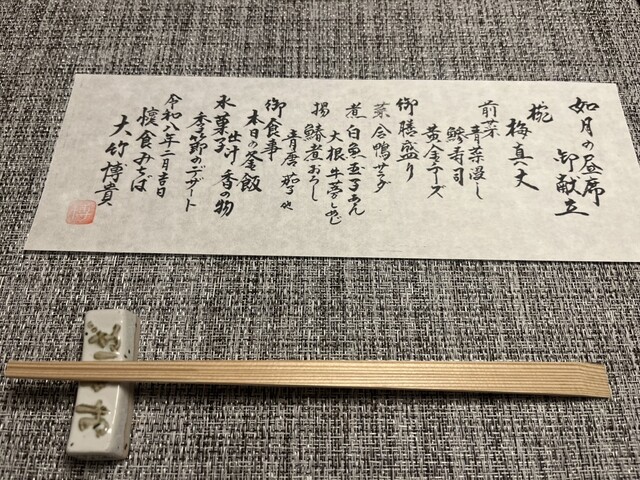 如月の昼席
御献立
椀 梅真丈
前菜 青菜浸し
鯵寿司
黄金チーズ
御膳盛り
菜 合鴨サラダ
煮 白魚玉子あん
大根 牛蒡 しめじ
揚 鰆煮おろし
青唐 茄子 他
御食事
本日の釜飯
出汁 香の物
水菓子
季節のデザート
令和八年二月吉日
懐食みちば
大竹博貴
博